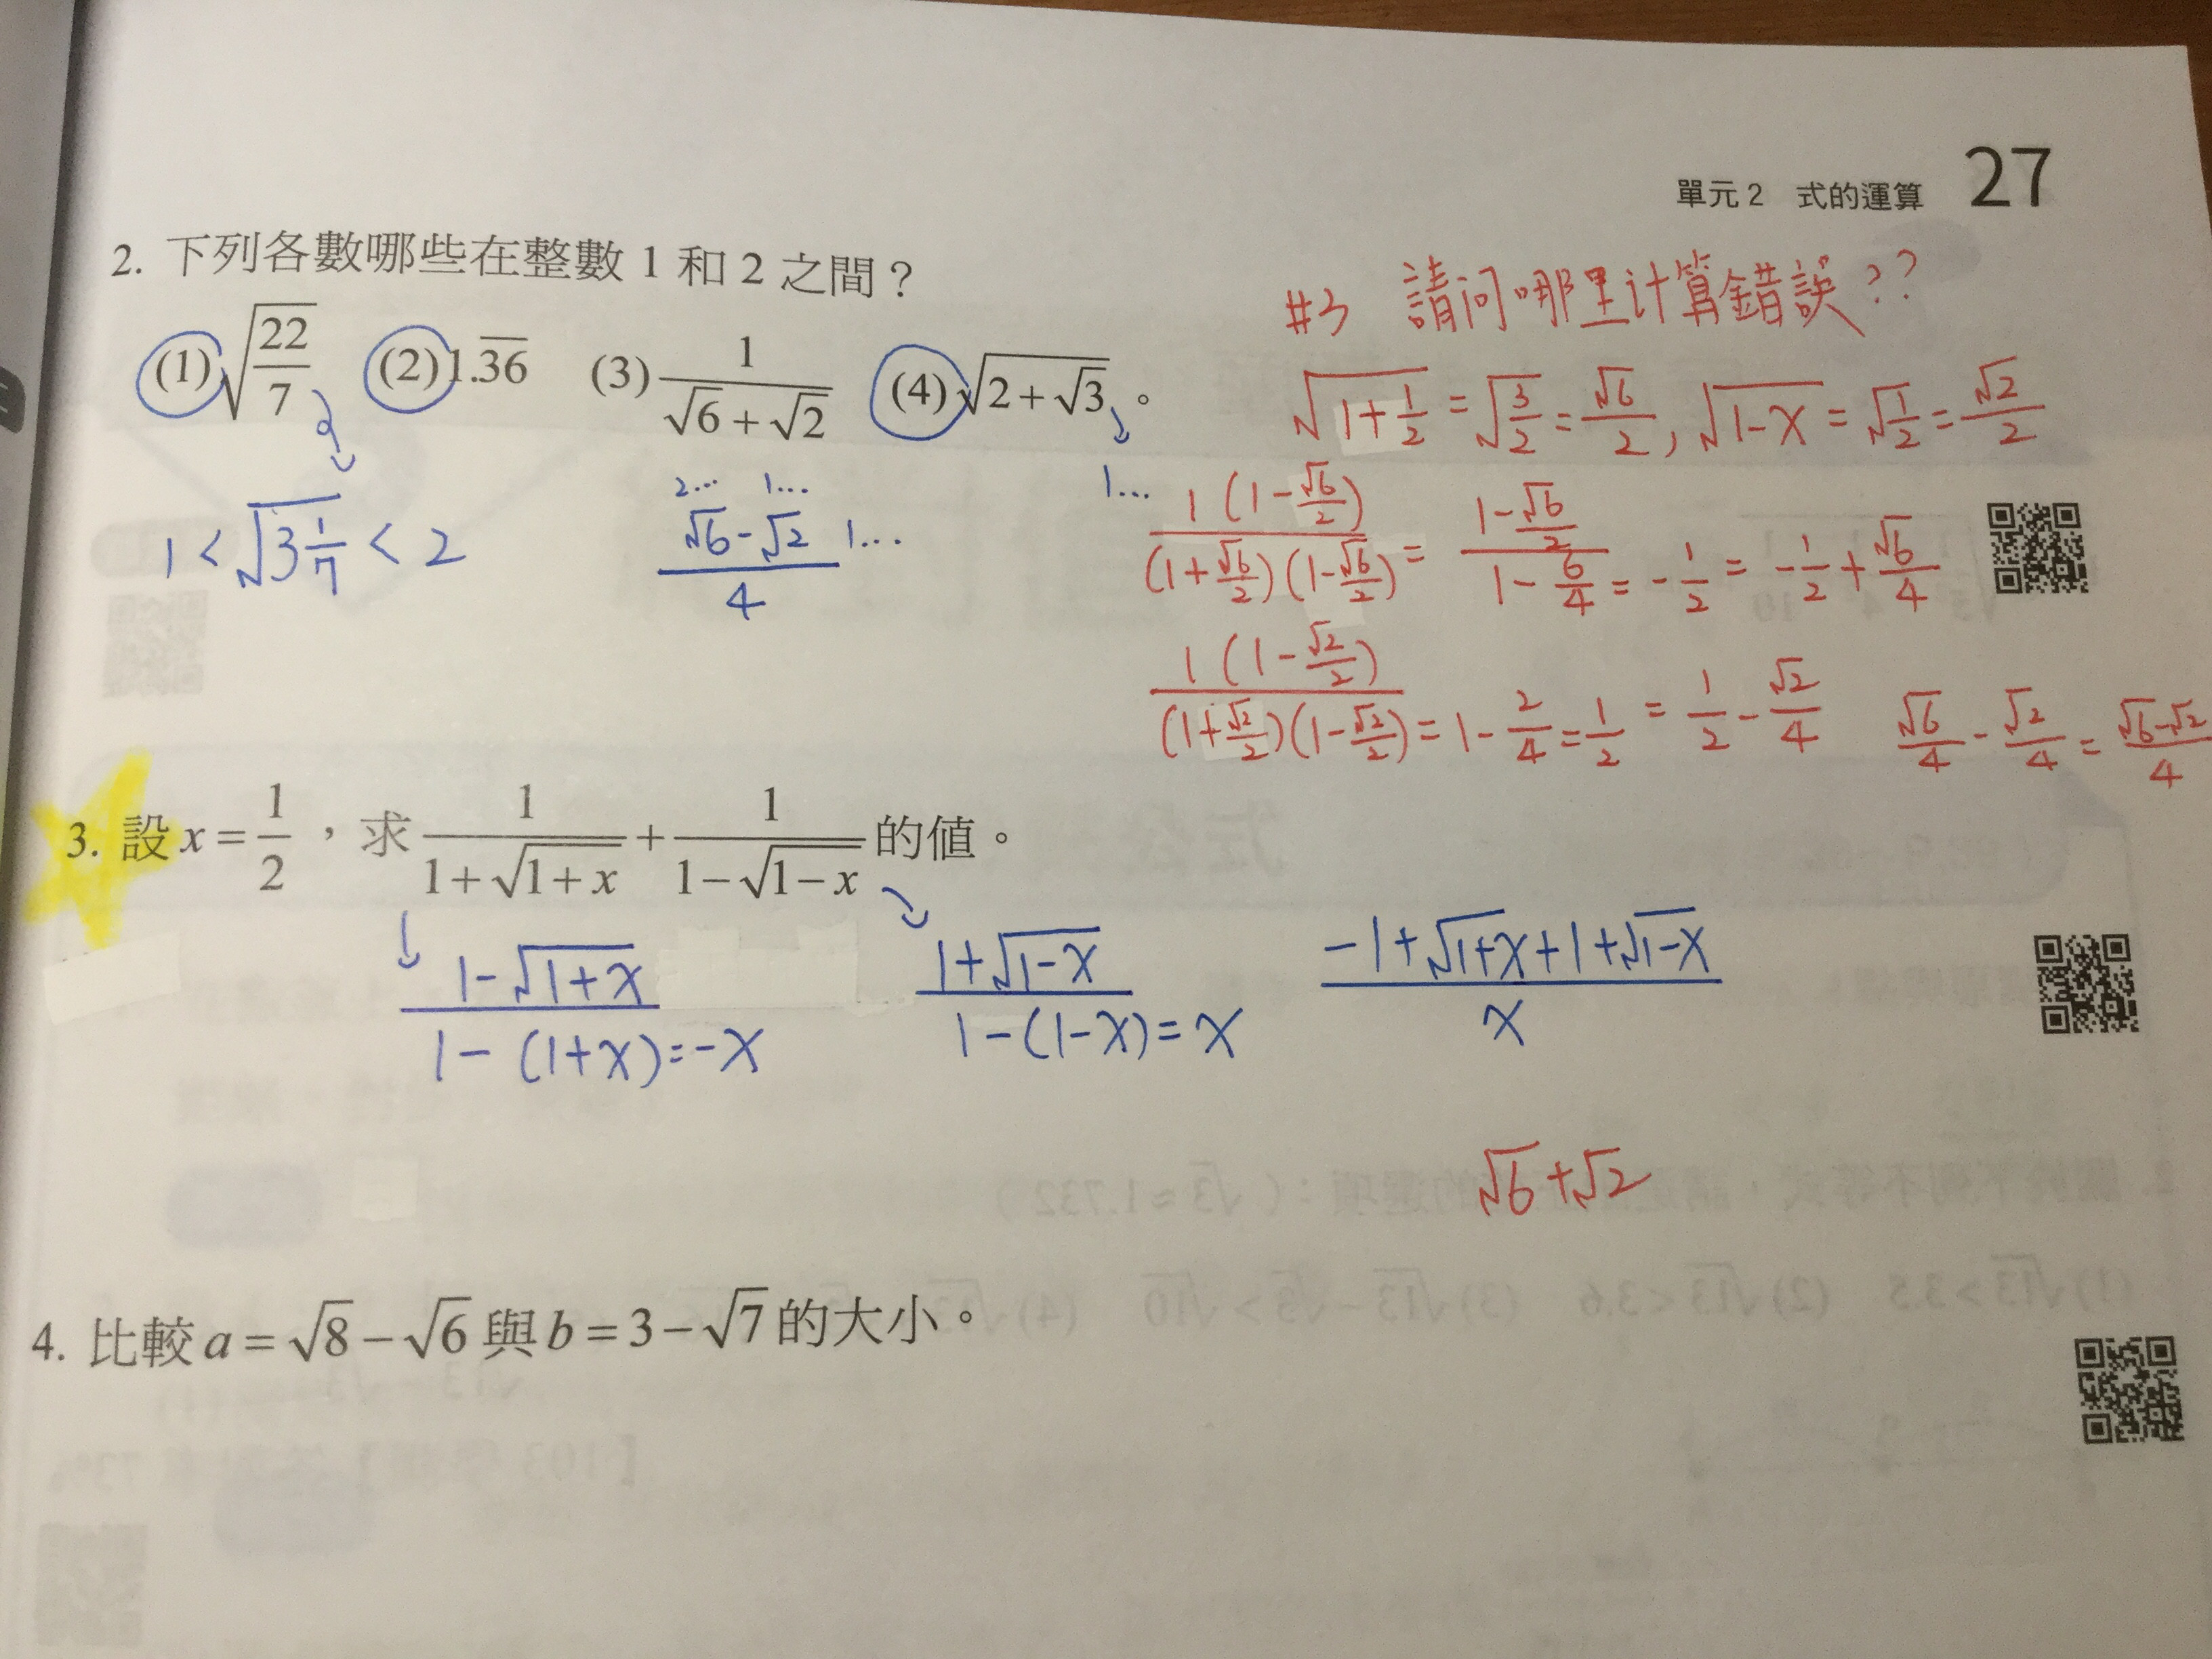 單元 2 式的運算 27
2. 下列各數哪些在整數 1 和 2 之間？
(1) √(22/7) (2) 1.3̅6̅ (3) 1/(√6+√2) (4) √(2+√3) 。
1 < √(3 1/7) < 2
2… 1…
(√6-√2)/4 1…
1…
#3 請问哪里计算錯誤??
√(1+1/2) = √(3/2) = √6/2, √(1-x) = √(1/2) = √2/2
1(1-√6/2)/((1+√6/2)(1-√6/2)) = (1-√6/2)/(1-6/4) = -1/2 = -1/2+√6/4
1(1-√2/2)/((1+√2/2)(1-√2/2)) = 1-2/4 = 1/2 = 1/2-√2/4 √6/4-√2/4 = (√6-√2)/4
3. 設 x = 1/2 ，求 1/(1+√(1+x)) + 1/(1-√(1-x)) 的值。
(1-√(1+x))/(1-(1+x)=-x) (1+√(1-x))/(1-(1-x)=x) (-1+√(1+x)+1+√(1-x))/x
√6+√2
4. 比較 a = √8 - √6 與 b = 3 - √7 的大小。